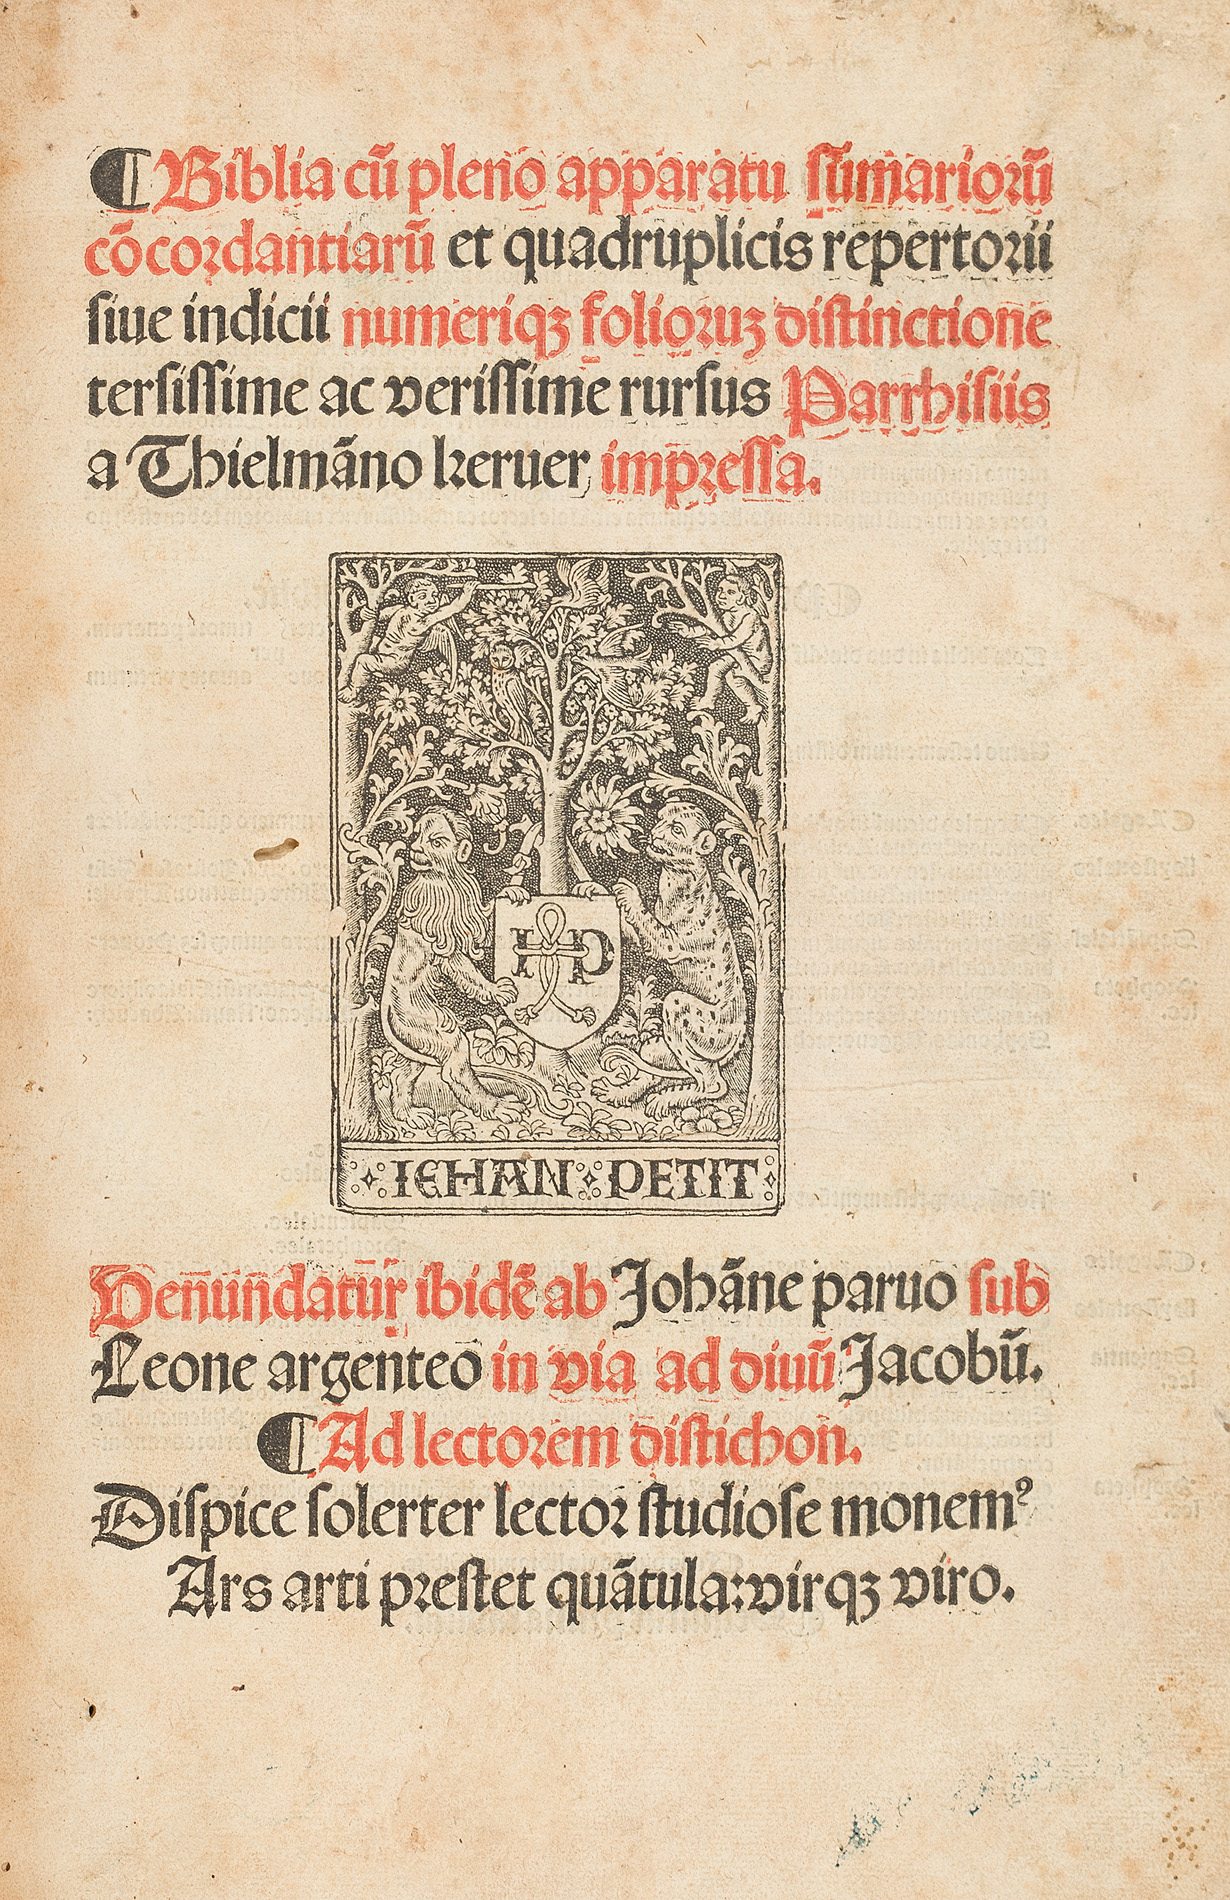 ¶Biblia cũ pleno apparatu sũmariorũ
cõcordantiarũ et quadruplicis repertorii
siue indicii numeriqꝫ folioruꝫ distinctione
tersissime ac verissime rursus Parrhisiis
a Thielmãno keruer impressa.
I P
IEHAN PETIT
Denũndatur ibidẽ ab Johãne paruo sub
Leone argenteo in via ad diuũ Jacobũ.
¶Ad lectorem distichon.
Dispice solerter lector studiose monemꝰ
Ars arti prestet quãtula: virqꝫ viro.